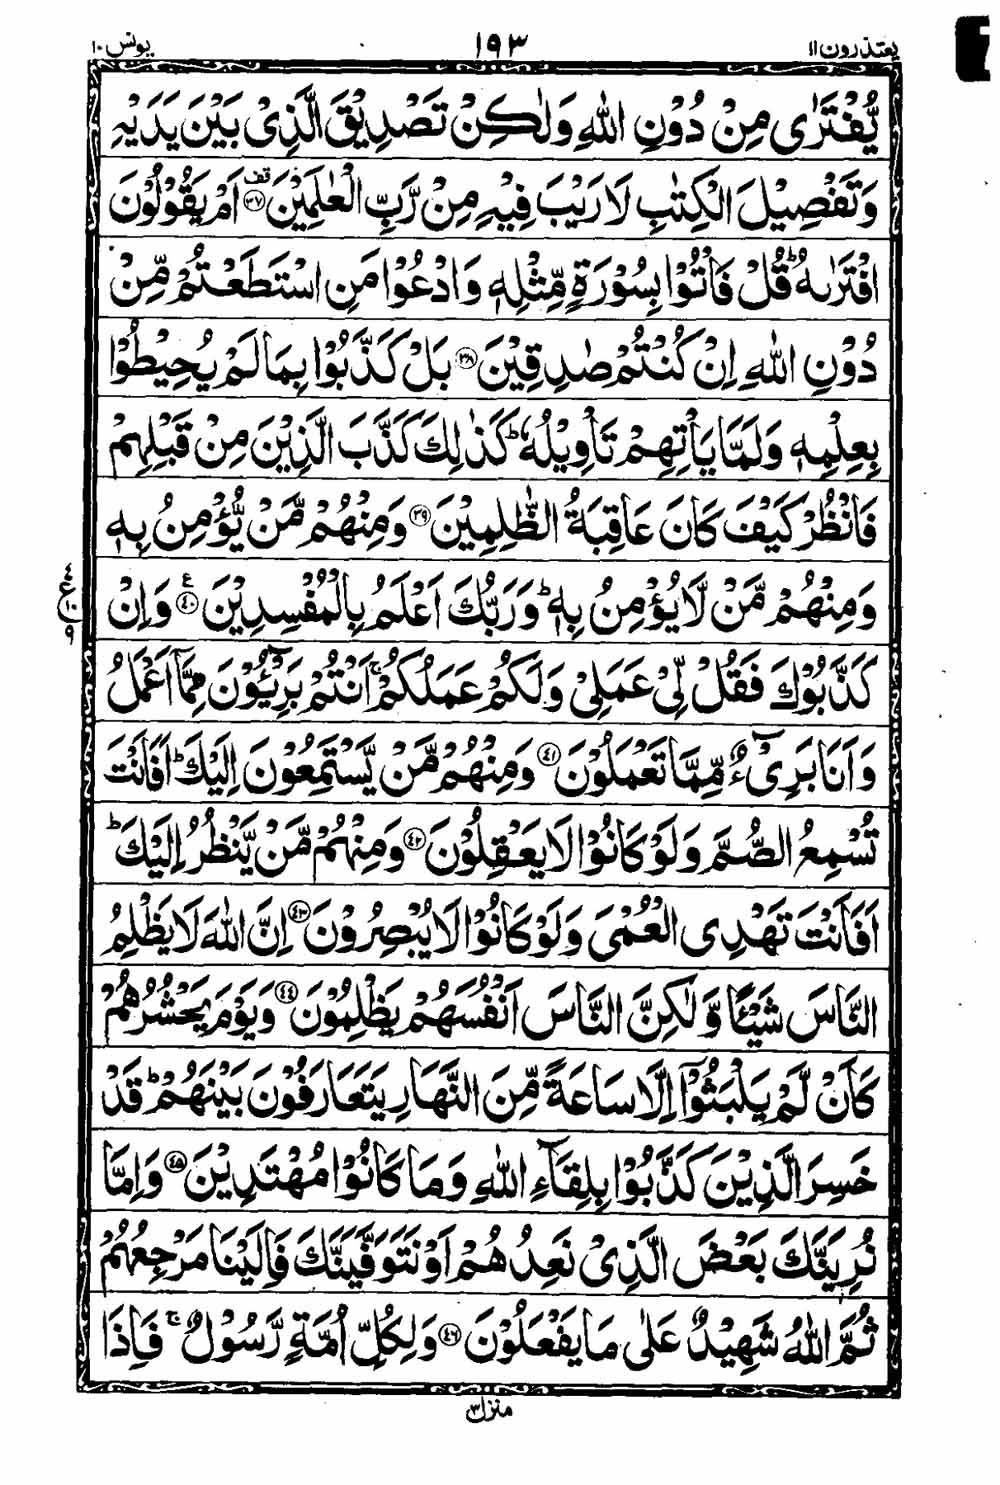 يعتذرون ١١ ١٩٣ يونس ١٠
يُّفْتَرٰى مِنْ دُوْنِ اللّٰهِ وَلٰكِنْ تَصْدِيْقَ الَّذِىْ بَيْنَ يَدَيْهِ
وَتَفْصِيْلَ الْكِتٰبِ لَا رَيْبَ فِيْهِ مِنْ رَّبِّ الْعٰلَمِيْنَ ۟قف ﴿٣٧﴾ اَمْ يَقُوْلُوْنَ
افْتَرٰىهُ ؕ قُلْ فَاْتُوْا بِسُوْرَةٍ مِّثْلِهٖ وَادْعُوْا مَنِ اسْتَطَعْتُمْ مِّنْ
دُوْنِ اللّٰهِ اِنْ كُنْتُمْ صٰدِقِيْنَ ﴿٣٨﴾ بَلْ كَذَّبُوْا بِمَا لَمْ يُحِيْطُوْا
بِعِلْمِهٖ وَلَمَّا يَاْتِهِمْ تَاْوِيْلُهٗ ؕ كَذٰلِكَ كَذَّبَ الَّذِيْنَ مِنْ قَبْلِهِمْ
فَانْظُرْ كَيْفَ كَانَ عَاقِبَةُ الظّٰلِمِيْنَ ﴿٣٩﴾ وَمِنْهُمْ مَّنْ يُّؤْمِنُ بِهٖ
وَمِنْهُمْ مَّنْ لَّا يُؤْمِنُ بِهٖ ؕ وَرَبُّكَ اَعْلَمُ بِالْمُفْسِدِيْنَ ﴿٤٠﴾ ع وَاِنْ
٤ ع ١٠ ٩
كَذَّبُوْكَ فَقُلْ لِّىْ عَمَلِىْ وَلَكُمْ عَمَلُكُمْ ۚ اَنْتُمْ بَرِيْٓئُوْنَ مِمَّاۤ اَعْمَلُ
وَاَنَا بَرِىْٓءٌ مِّمَّا تَعْمَلُوْنَ ﴿٤١﴾ وَمِنْهُمْ مَّنْ يَّسْتَمِعُوْنَ اِلَيْكَ ؕ اَفَاَنْتَ
تُسْمِعُ الصُّمَّ وَلَوْ كَانُوْا لَا يَعْقِلُوْنَ ﴿٤٢﴾ وَمِنْهُمْ مَّنْ يَّنْظُرُ اِلَيْكَ ؕ
اَفَاَنْتَ تَهْدِى الْعُمْىَ وَلَوْ كَانُوْا لَا يُبْصِرُوْنَ ﴿٤٣﴾ اِنَّ اللّٰهَ لَا يَظْلِمُ
النَّاسَ شَيْئًا وَّلٰكِنَّ النَّاسَ اَنْفُسَهُمْ يَظْلِمُوْنَ ﴿٤٤﴾ وَيَوْمَ يَحْشُرُهُمْ
كَاَنْ لَّمْ يَلْبَثُوْۤا اِلَّا سَاعَةً مِّنَ النَّهَارِ يَتَعَارَفُوْنَ بَيْنَهُمْ ؕ قَدْ
خَسِرَ الَّذِيْنَ كَذَّبُوْا بِلِقَآءِ اللّٰهِ وَمَا كَانُوْا مُهْتَدِيْنَ ﴿٤٥﴾ وَاِمَّا
نُرِيَنَّكَ بَعْضَ الَّذِىْ نَعِدُهُمْ اَوْ نَتَوَفَّيَنَّكَ فَاِلَيْنَا مَرْجِعُهُمْ
ثُمَّ اللّٰهُ شَهِيْدٌ عَلٰى مَا يَفْعَلُوْنَ ﴿٤٦﴾ وَلِكُلِّ اُمَّةٍ رَّسُوْلٌ ۚ فَاِذَا
منزل ٣